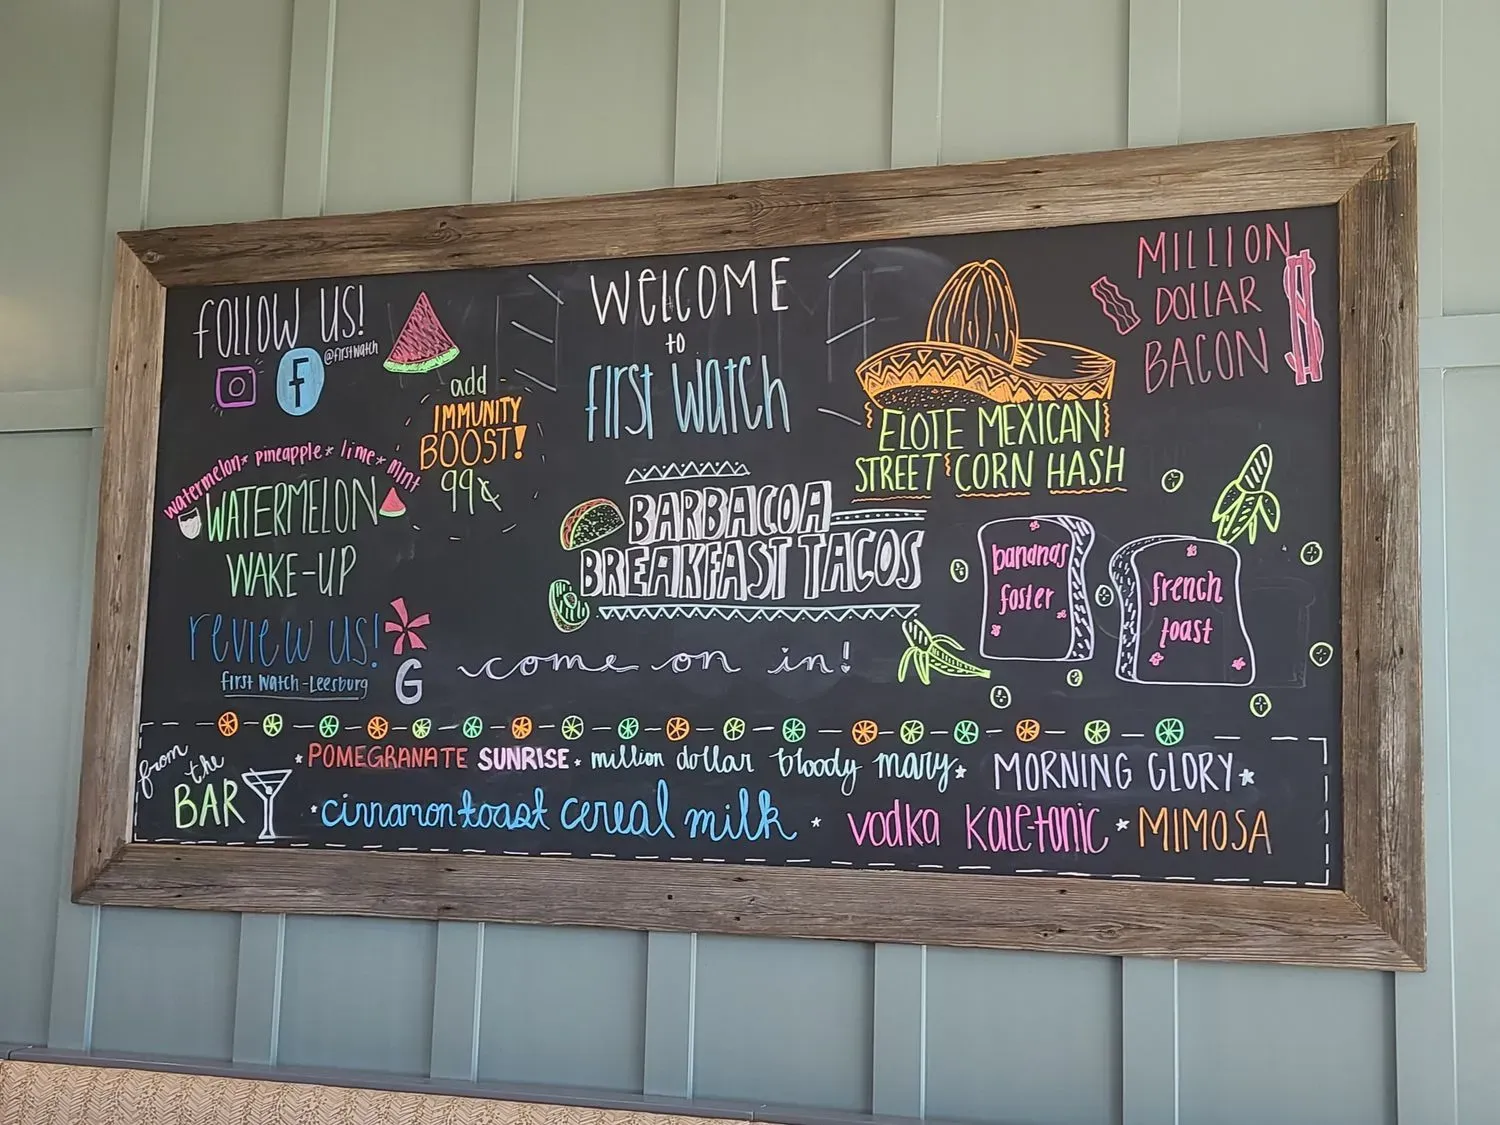 FOLLOW US!
@firstwatch
f
add
IMMUNITY
BOOST!
99¢
watermelon * pineapple * lime * mint
WATERMELON
WAKE-UP
review us!
First Watch-Leesburg
G
WELCOME
to
First Watch
BARBACOA
BREAKFAST TACOS
come on in!
ELOTE MEXICAN
STREET CORN HASH
MILLION
DOLLAR
BACON
$
bananas
foster
french
toast
from
the
BAR
* POMEGRANATE SUNRISE * million dollar bloody mary * MORNING GLORY *
* cinnamon toast cereal milk * vodka kale-tonic * MIMOSA